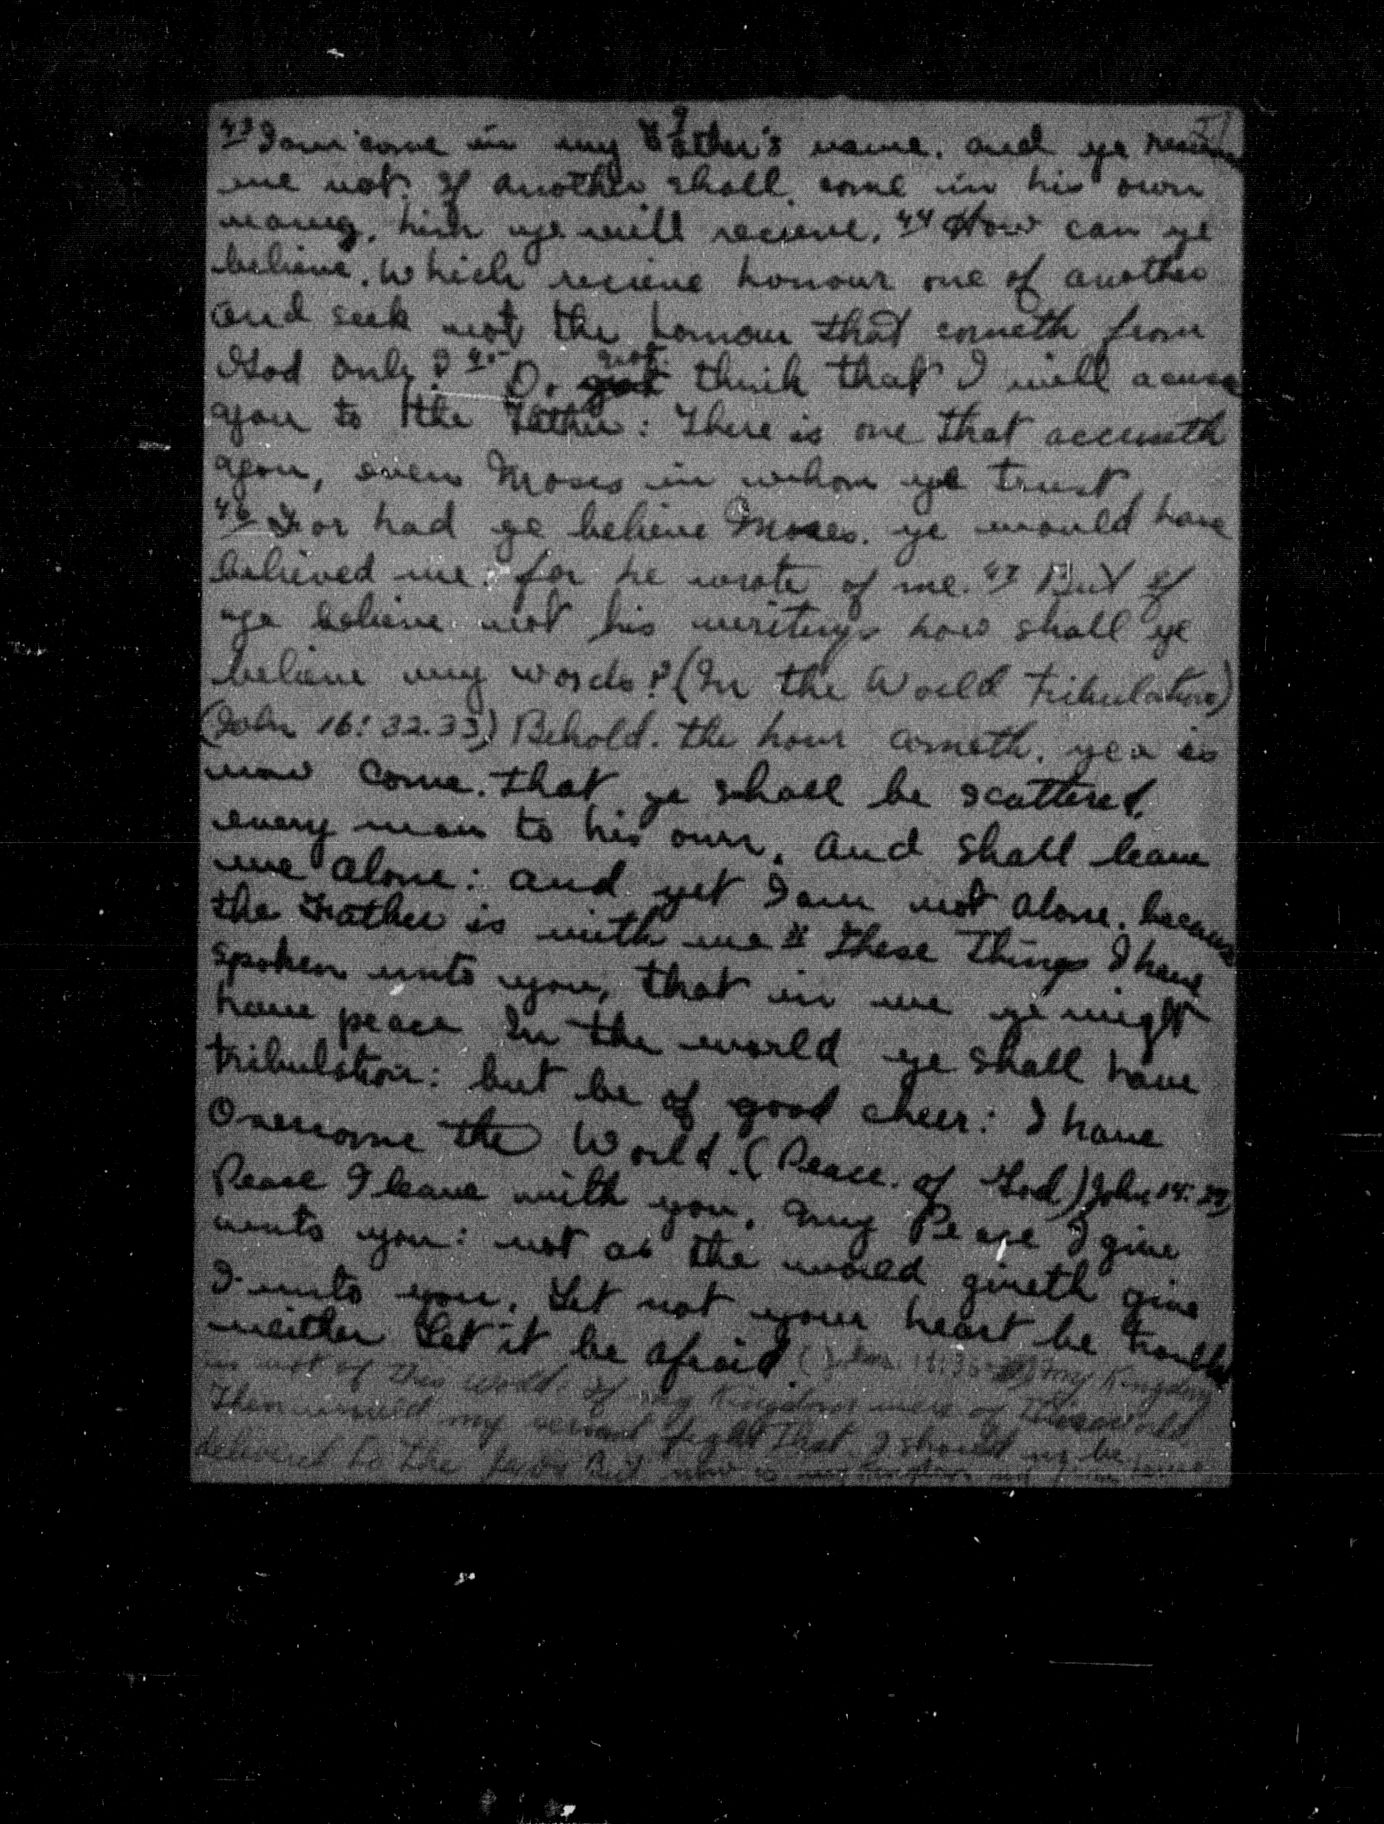 43 I am come in my Father's name. and ye recieve
me not. If another shall. come in his own
name, him ye will recieve. 44 How can ye
believe. which recieve honour one of another
and seek not the honour that cometh from
God only? 45 Do not think that I will acuse
you to the Father: There is one that accuseth
you, even Moses in whom ye trust
46 For had ye believe Moses. ye would have
believed me: for he wrote of me. 47 But if
ye believe not his writings how shall ye
believe my words? (In the World Tribulation)
(John 16: 32.33) Behold. the hour cometh. yea is
now come. that ye shall be scattered.
every man to his own. and shall leave
me alone: and yet I am not alone. because
the Father is with me These Things I have
spoken unto you, that in me ye might
have peace In the world ye shall have
tribulation: but be of good cheer: I have
Overcome the World. (Peace. of God) John 14: 27
Peace I leave with you. my Peace I give
unto you: not as the world giveth give
I unto you. Let not your heart be troubled
neither Let it be afraid. my Kingdom
is not of this world. If my Kingdom were of this world
Then would my servant fight That I should not be
delivered to the Jews But now is my